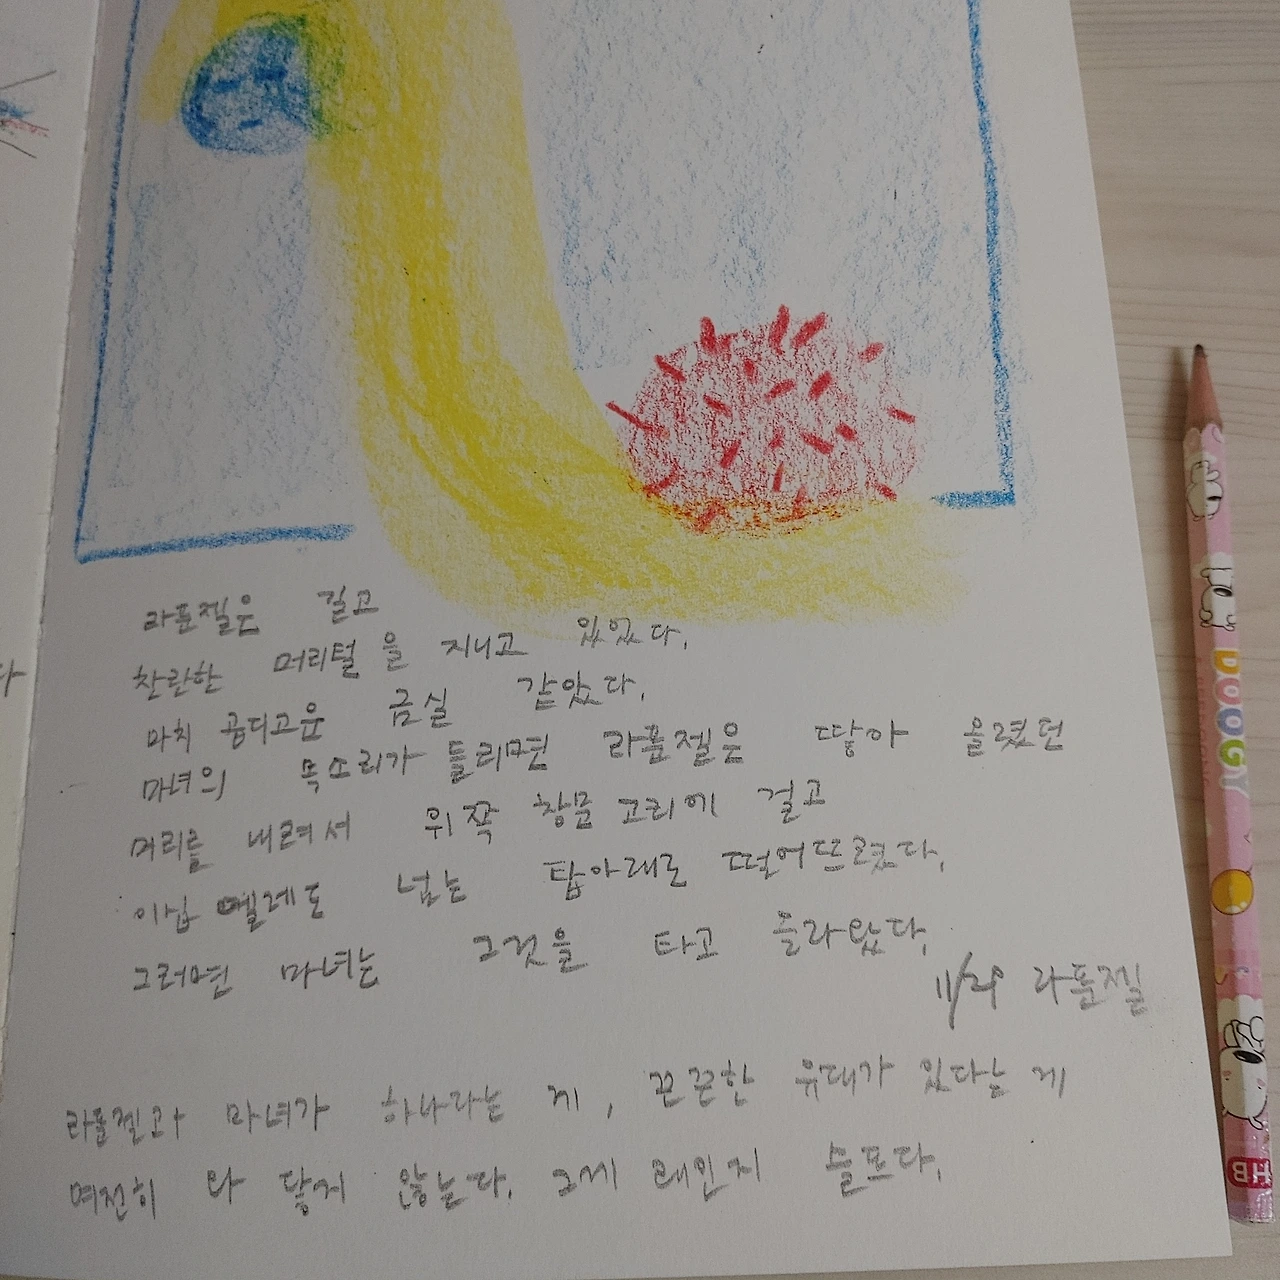 라푼젤은 길고
찬란한 머리털을 지니고 있었다.
마치 곱디고운 금실 같았다.
마녀의 목소리가 들리면 라푼젤은 땋아 올렸던
머리를 내려서 위쪽 창문 고리에 걸고
이십 엘레도 넘는 탑아래로 떨어뜨렸다.
그러면 마녀는 그것을 타고 올라왔다.
11/29 라푼젤
라푼젤과 마녀가 하나라는 게, 끈끈한 유대가 있다는 게
여전히 와 닿지 않는다. 그게 왜인지 슬프다.
다
DOOGY
HB